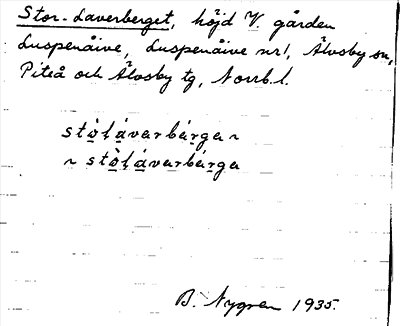 Stor-Laverberget, höjd V. gården
Luspenåive, Luspenåive nr 1, Älvsby sn,
Piteå och Älvsby tg, Norrb. l.
stò̤ḷá̤varbár̤ga ~
~ stò̤ḷá̤varbár̤ga
B. Nygren 1935.